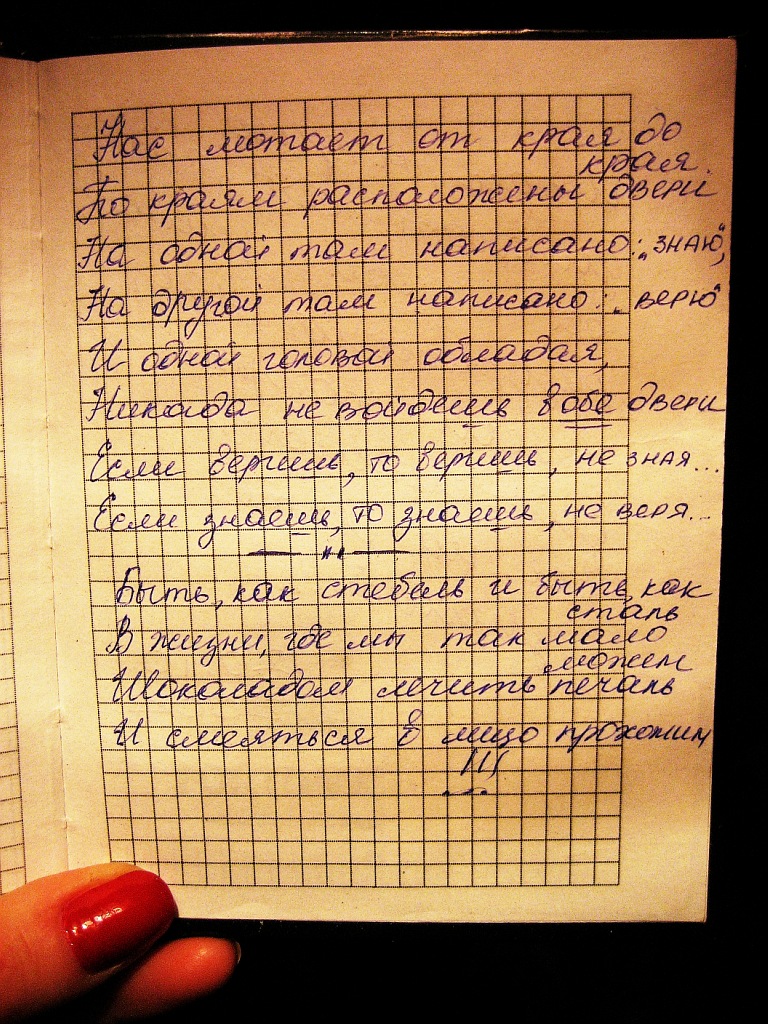 Нас мотает от края до
края.
По краям расположены двери
На одной там написано: „знаю",
На другой там написано: „верю"
И одной головой обладая,
Никогда не войдешь в обе двери
Если веришь, то веришь, не зная...
Если знаешь, то знаешь, не веря...
Быть, как стебель и быть, как
сталь
В жизни, где мы так мало
можем
Шоколадом лечить печаль
И смеяться в лицо прохожим
!!!